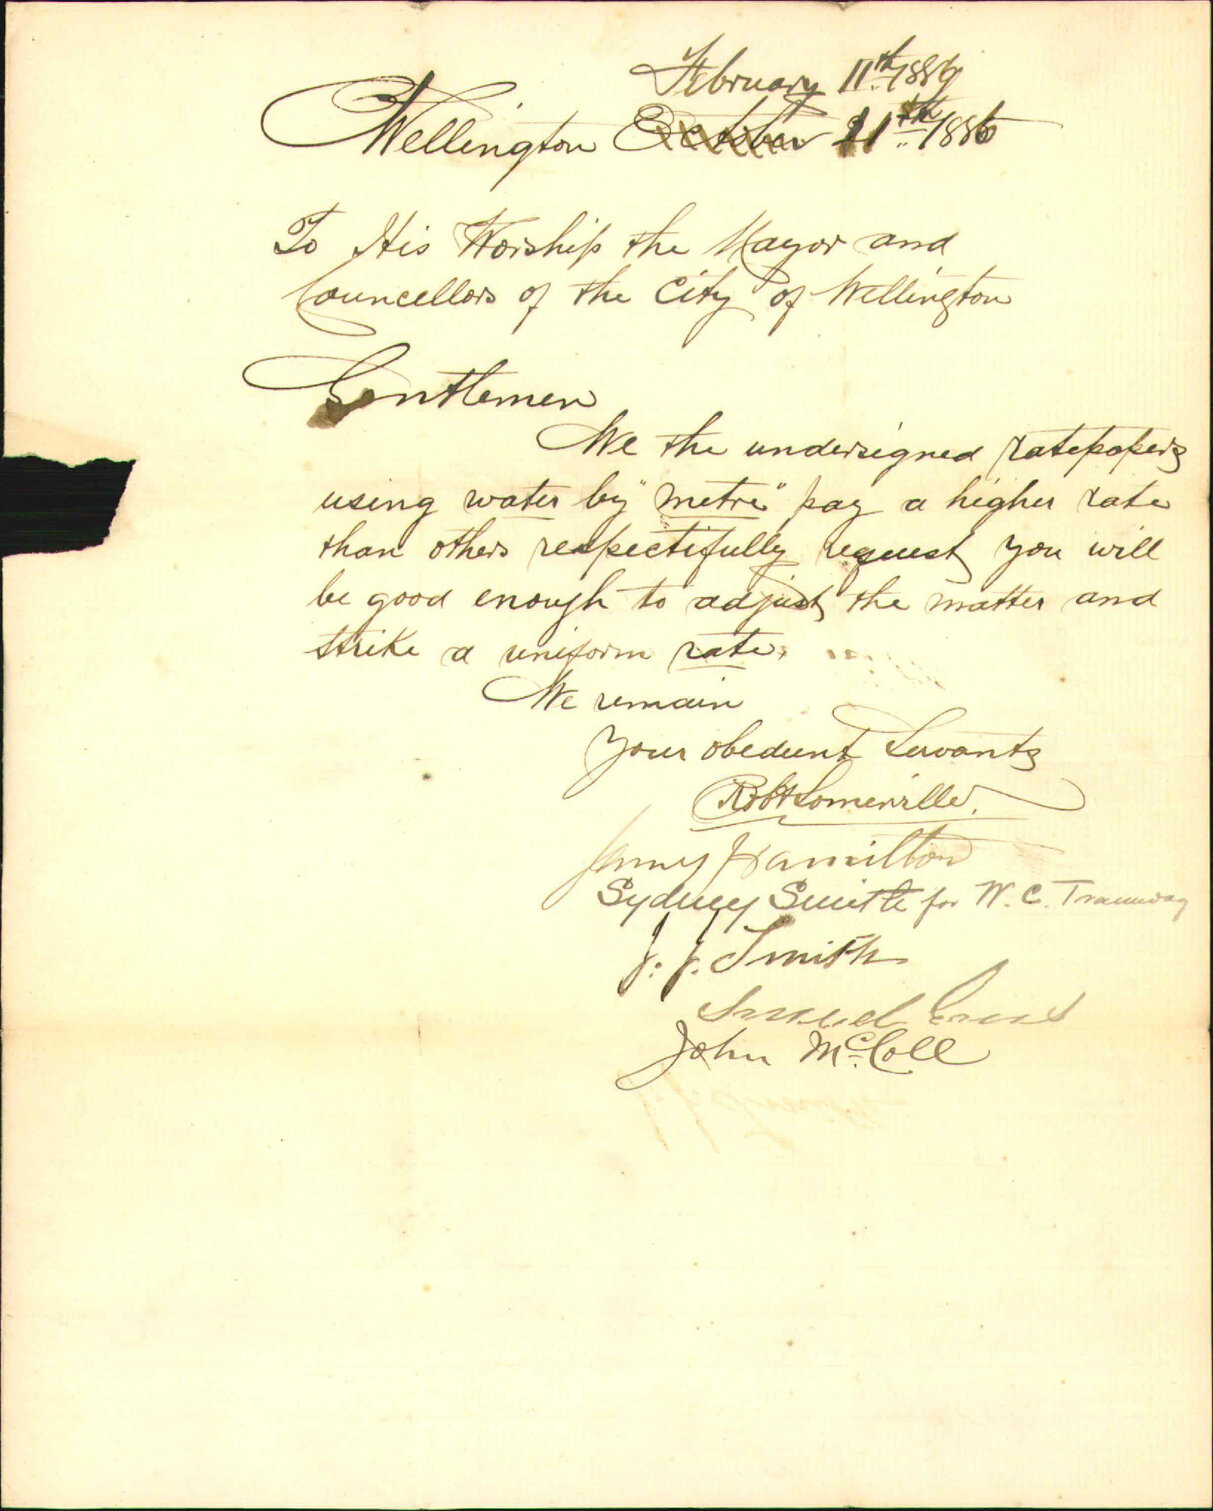 February 11th 1886
Wellington October 21th 1886
To His Worship the Mayor and
Councellors of the City of Wellington
Gentlemen
We the undersigned ratepapers
using water by "metre" pay a higher rate
than others respectifully request you will
be good enough to adjust the matter and
strike a uniform rate.
We remain
Your obedient Servants
Robt Somerville.
Hamilton
Sydney Smith for W. C. Tramway
J. J. Smith
Samuel
John McColl